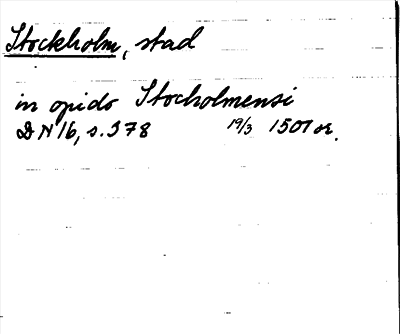 Stockholm, stad
in opido Stocholmensi
DN 16, s. 378 19/3 1501 or.